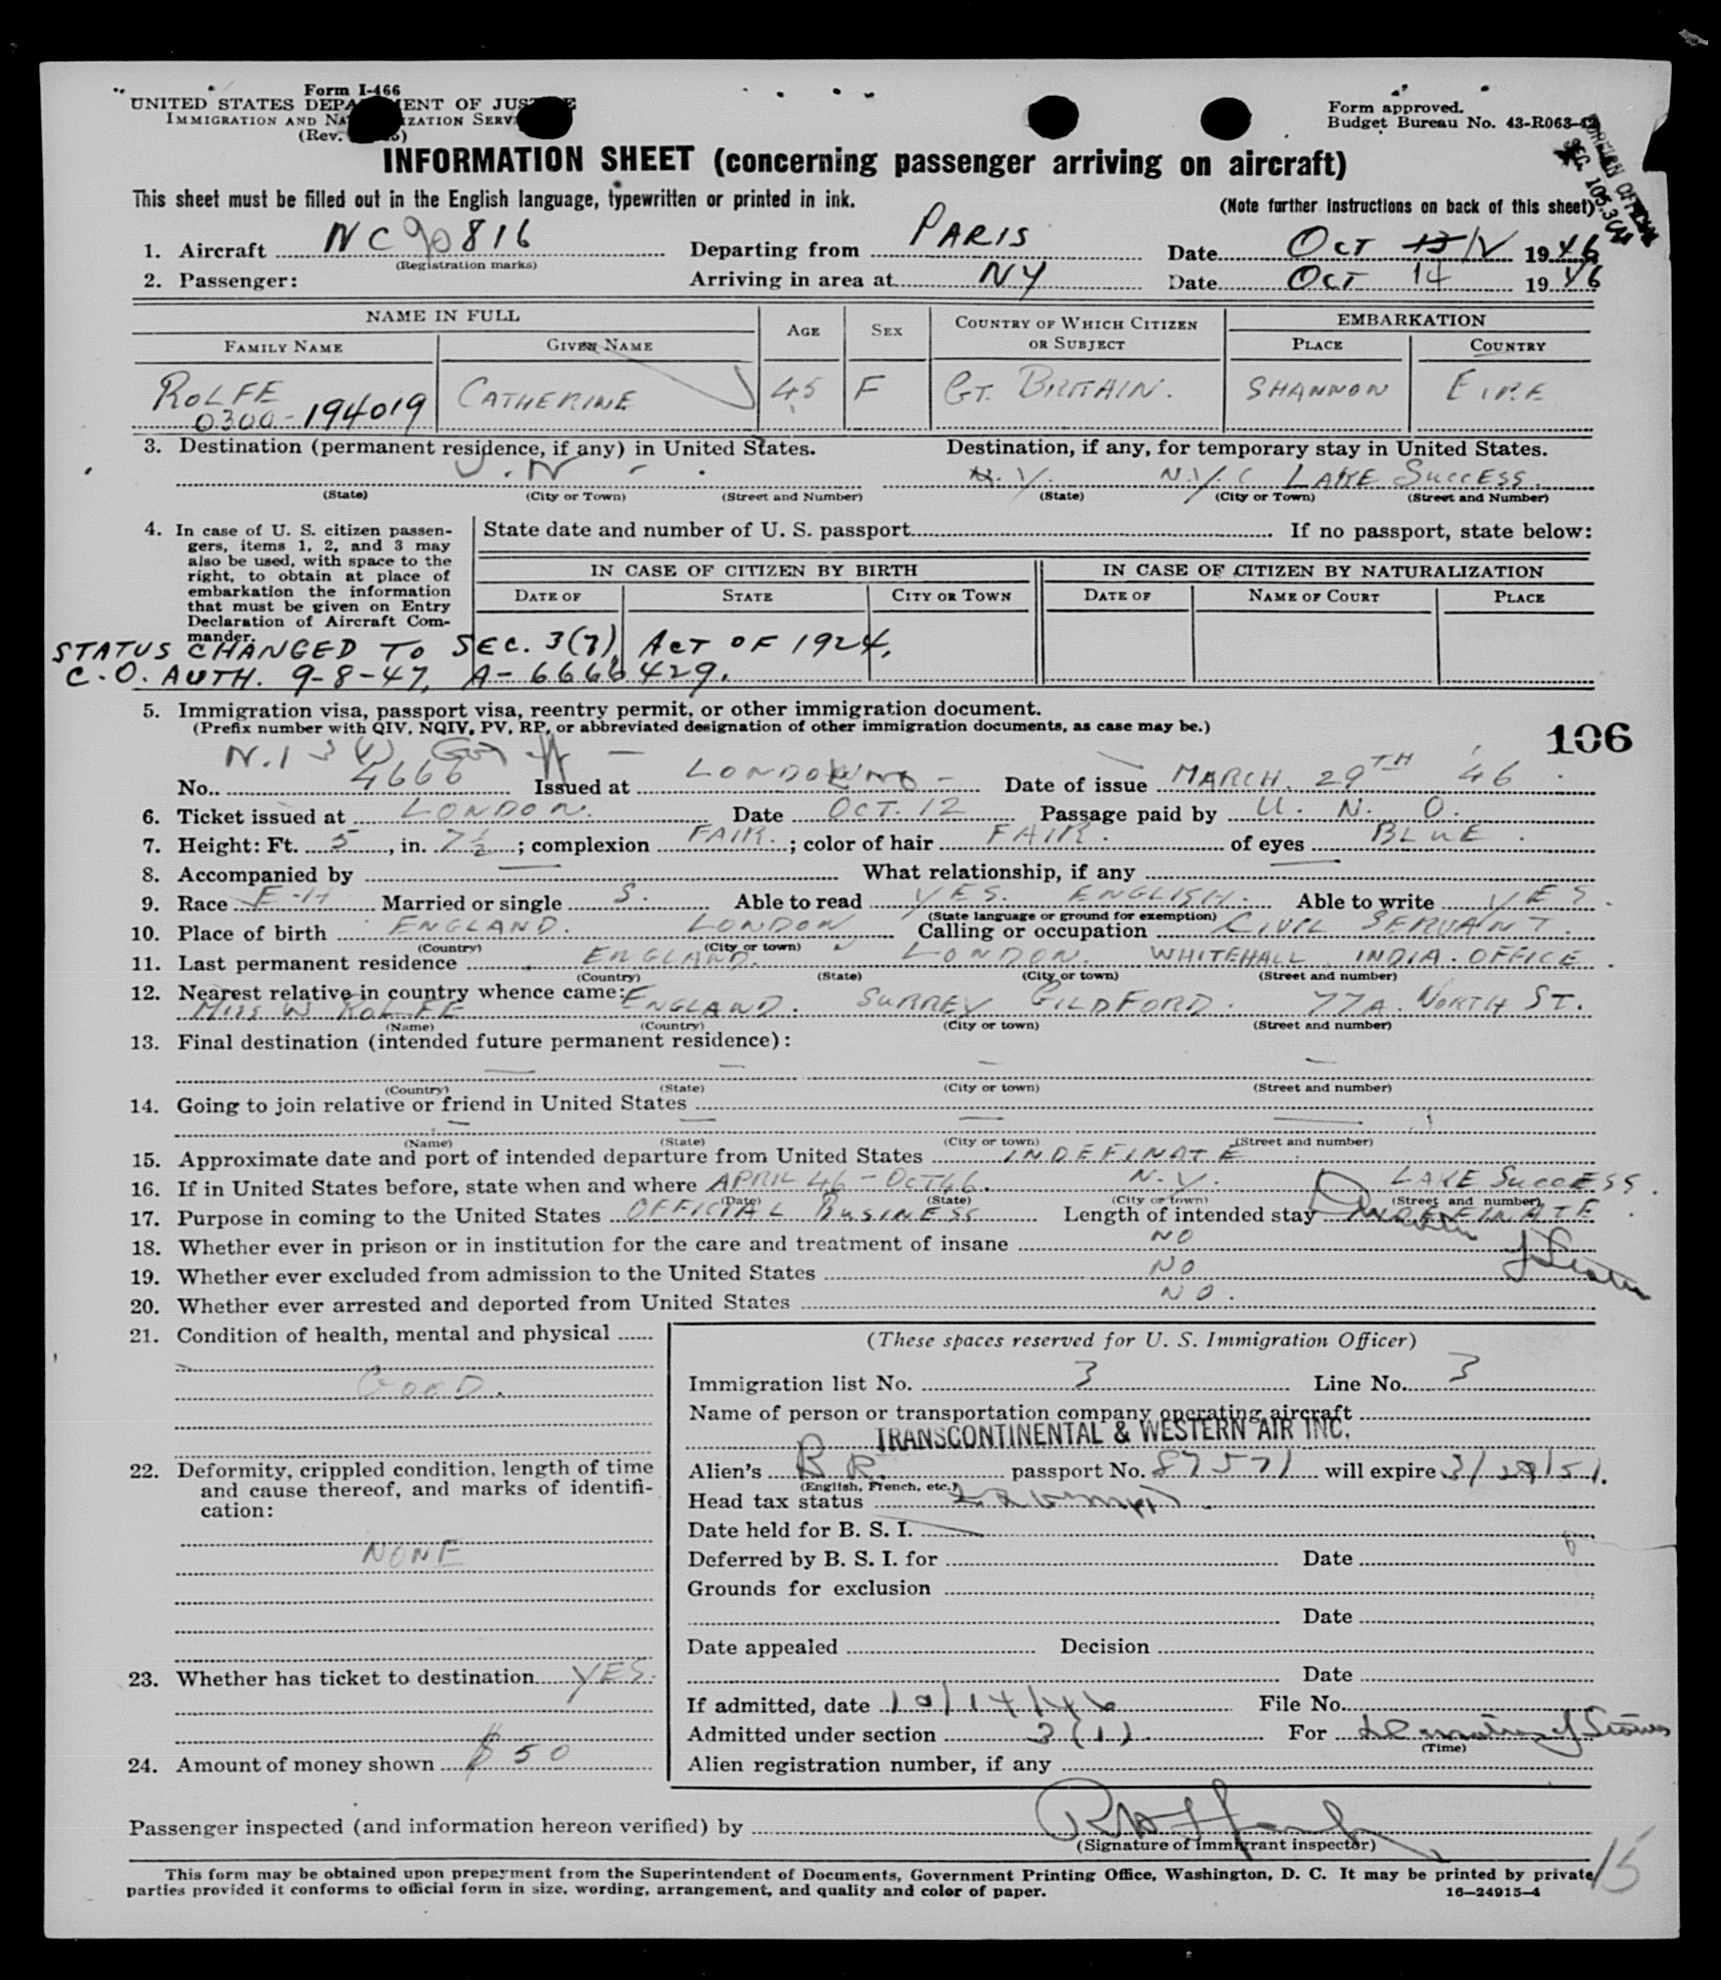 Form I-466
UNITED STATES DEPARTMENT OF JUSTICE
IMMIGRATION AND NATURALIZATION SERVICE
(Rev.
Form approved.
Budget Bureau No. 43-R063-42
INFORMATION SHEET (concerning passenger arriving on aircraft)
This sheet must be filled out in the English language, typewritten or printed in ink.
(Note further instructions on back of this sheet)
1. Aircraft NC90816 Departing from PARIS Date OCT 1946
(Registration marks)
2. Passenger: Arriving in area at NY Date OCT 14 1946
NAME IN FULL AGE SEX COUNTRY OF WHICH CITIZEN OR SUBJECT EMBARKATION
FAMILY NAME GIVEN NAME PLACE COUNTRY
ROLFE CATHERINE 45 F GT. BRITAIN. SHANNON EIRE
0300-194019
3. Destination (permanent residence, if any) in United States. Destination, if any, for temporary stay in United States.
U.N. N.Y. N.Y.C LAKE SUCCESS.
(State) (City or Town) (Street and Number) (State) (City or Town) (Street and Number)
4. In case of U. S. citizen passengers, items 1, 2, and 3 may also be used, with space to the right, to obtain at place of embarkation the information that must be given on Entry Declaration of Aircraft Commander.
State date and number of U. S. passport If no passport, state below:
IN CASE OF CITIZEN BY BIRTH IN CASE OF CITIZEN BY NATURALIZATION
DATE OF STATE CITY OR TOWN DATE OF NAME OF COURT PLACE
STATUS CHANGED TO SEC. 3(7) ACT OF 1924,
C.O. AUTH. 9-8-47, A-6666429.
5. Immigration visa, passport visa, reentry permit, or other immigration document.
(Prefix number with QIV, NQIV, PV, RP, or abbreviated designation of other immigration documents, as case may be.)
106
No. 4666 Issued at LONDON Date of issue MARCH. 29TH 46
6. Ticket issued at LONDON. Date OCT. 12 Passage paid by U. N. O.
7. Height: Ft. 5, in. 7½; complexion FAIR.; color of hair FAIR. of eyes BLUE.
8. Accompanied by — What relationship, if any —
9. Race Married or single S. Able to read YES. ENGLISH. Able to write YES.
(State language or ground for exemption)
10. Place of birth ENGLAND. LONDON Calling or occupation CIVIL SERVANT.
(Country) (City or town)
11. Last permanent residence ENGLAND. LONDON. WHITEHALL INDIA. OFFICE.
(Country) (State) (City or town) (Street and number)
12. Nearest relative in country whence came:
MISS W ROLFE ENGLAND. SURREY GILDFORD. 77A. NORTH ST.
(Name) (Country) (City or town) (Street and number)
13. Final destination (intended future permanent residence):
— — — —
(Country) (State) (City or town) (Street and number)
14. Going to join relative or friend in United States
— — — —
(Name) (State) (City or town) (Street and number)
15. Approximate date and port of intended departure from United States INDEFINATE
16. If in United States before, state when and where APRIL 46 - OCT 46. N.Y. LAKE SUCCESS.
(Date) (State) (City or town) (Street and number)
17. Purpose in coming to the United States OFFICIAL BUSINESS Length of intended stay INDEFINATE.
18. Whether ever in prison or in institution for the care and treatment of insane NO
19. Whether ever excluded from admission to the United States NO
20. Whether ever arrested and deported from United States NO.
21. Condition of health, mental and physical
GOOD.
22. Deformity, crippled condition, length of time and cause thereof, and marks of identification:
NONE
23. Whether has ticket to destination YES.
24. Amount of money shown $50
(These spaces reserved for U. S. Immigration Officer)
Immigration list No. 3 Line No. 3
Name of person or transportation company operating aircraft
TRANSCONTINENTAL & WESTERN AIR INC.
Alien's BR. passport No. 87571 will expire 3/29/51.
(English, French, etc.)
Head tax status
Date held for B. S. I.
Deferred by B. S. I. for Date
Grounds for exclusion
Date
Date appealed Decision
Date
If admitted, date 10/14/46 File No.
Admitted under section 3(1). For
(Time)
Alien registration number, if any
Passenger inspected (and information hereon verified) by
(Signature of immigrant inspector)
15
This form may be obtained upon prepayment from the Superintendent of Documents, Government Printing Office, Washington, D. C. It may be printed by private
parties provided it conforms to official form in size, wording, arrangement, and quality and color of paper.
16—24915-4